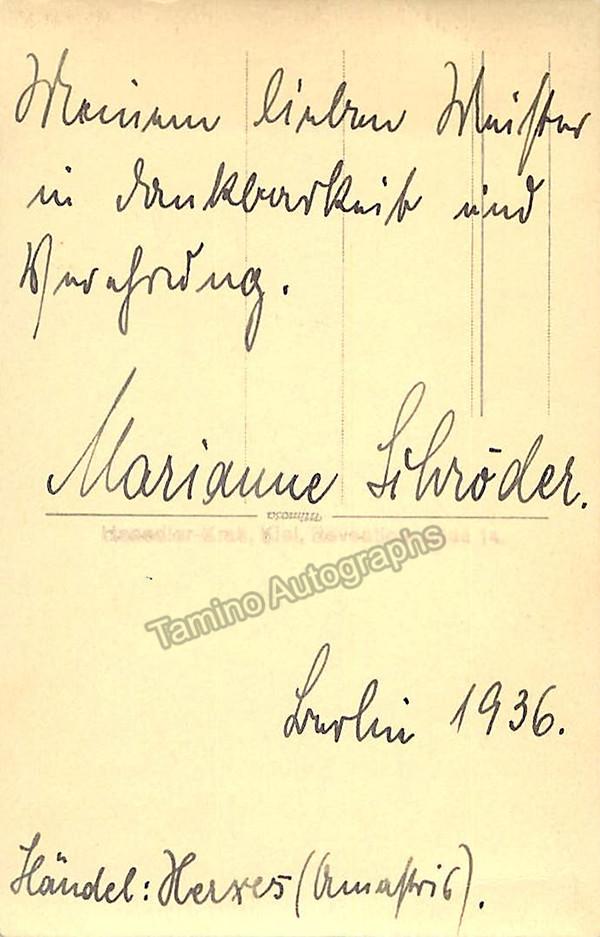 Meinem lieben Meister
in Dankbarkeit und
Verehrung.
Marianne Schröder.
Mimosa
Tamino Autographs
Berlin 1936.
Händel: Xerxes (Amastris).